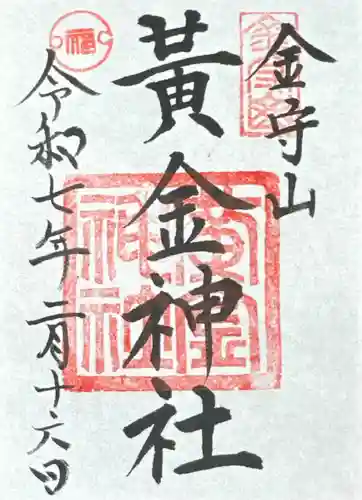 金守山
黃金神社
令和七年二月十六日
福
黄金
神社